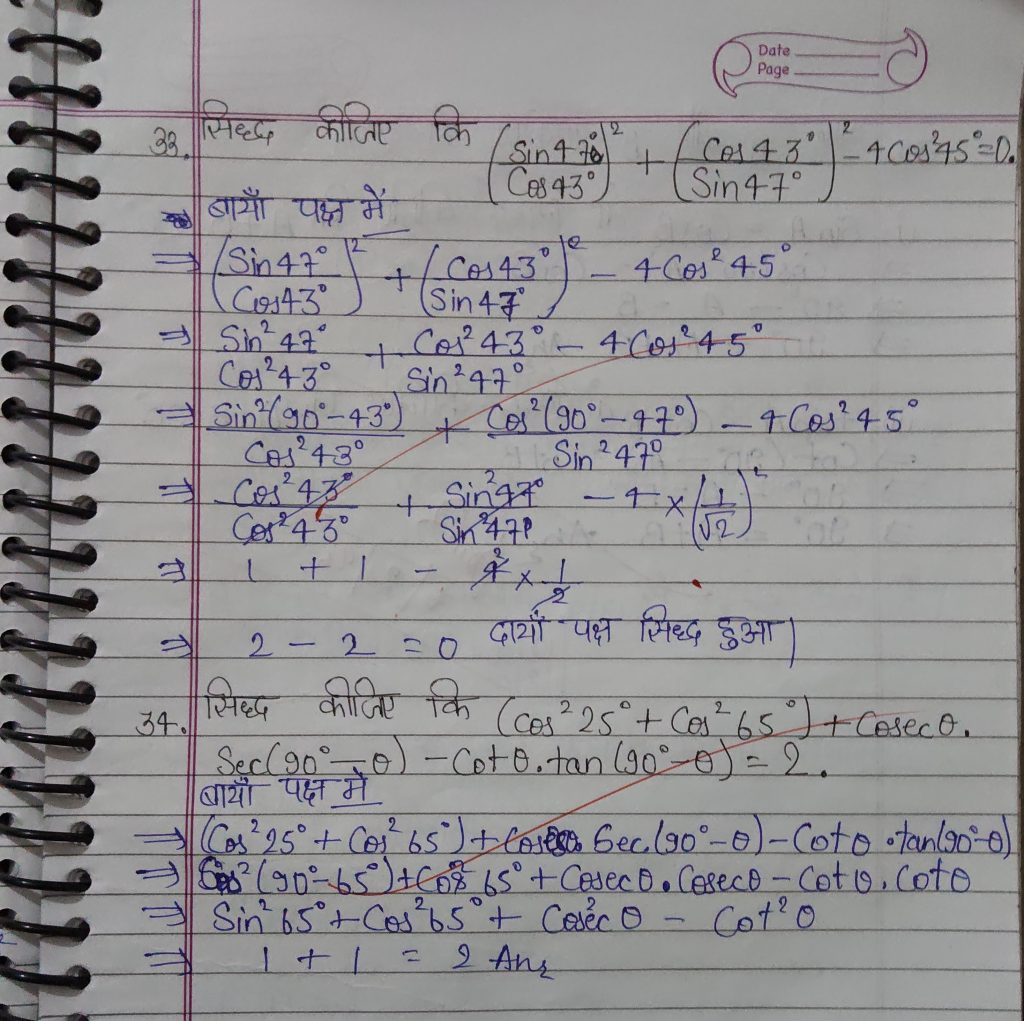 Date
Page
33. सिध्द कीजिए कि (Sin47°/Cos43°)² + (Cos43°/Sin47°)² - 4Cos²45°=0.
बायाँ पक्ष में
⇒ (Sin47°/Cos43°)² + (Cos43°/Sin47°)² - 4Cos²45°
⇒ Sin²47°/Cos²43° + Cos²43°/Sin²47° - 4Cos²45°
⇒ Sin²(90°-43°)/Cos²43° + Cos²(90°-47°)/Sin²47° - 4Cos²45°
⇒ Cos²43°/Cos²43° + Sin²47°/Sin²47° - 4×(1/√2)²
⇒ 1 + 1 - 4² × 1/2
⇒ 2 - 2 = 0 दायाँ पक्ष सिध्द हुआ|
34. सिध्द कीजिए कि (Cos²25° + Cos²65°) + Cosecθ.
Sec(90°-θ) - Cotθ.tan(90°-θ) = 2.
बायाँ पक्ष में
⇒ (Cos²25° + Cos²65°) + Sec(90°-θ) - Cotθ.tan(90°-θ)
⇒ (90°-65°) + Cos²65° + Cosecθ.Cosecθ - Cotθ.Cotθ
⇒ Sin²65° + Cos²65° + Cosec²θ - Cot²θ
⇒ 1 + 1 = 2 Ans